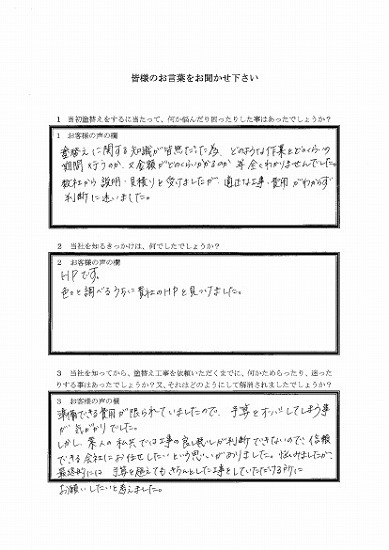 皆様のお言葉をお聞かせ下さい
1 当初塗替えをするに当たって、何か悩んだり困ったりした事はあったでしょうか？
1 お客様の声の欄
塗替えに関する知識が皆無だった為、どのような作業をどのくらいの
期間行うのか、又金額がどのくらいかかるのか 全くわかりませんでした。
数社から説明・見積りを受けましたが、適正な工事・費用がわからず
判断に迷いました。
2 当社を知るきっかけは、何でしたでしょうか？
2 お客様の声の欄
HPです。
色々と調べるうちに貴社のHPを見つけました。
3 当社を知ってから、塗替え工事を依頼いただくまでに、何かためらったり、迷った
りする事はあったでしょうか？又、それはどのようにして解消されましたでしょうか？
3 お客様の声の欄
準備できる費用が限られていましたので、予算をオーバーしてしまう事
が気がかりでした。
しかし、素人の私共では工事の良し悪しが判断できないので、信頼
できる会社にお任せしたいという思いがありました。悩みましたが、
最終的には 予算を超えてもきちんとした工事をしていただける所に
お願いしたいと考えました。